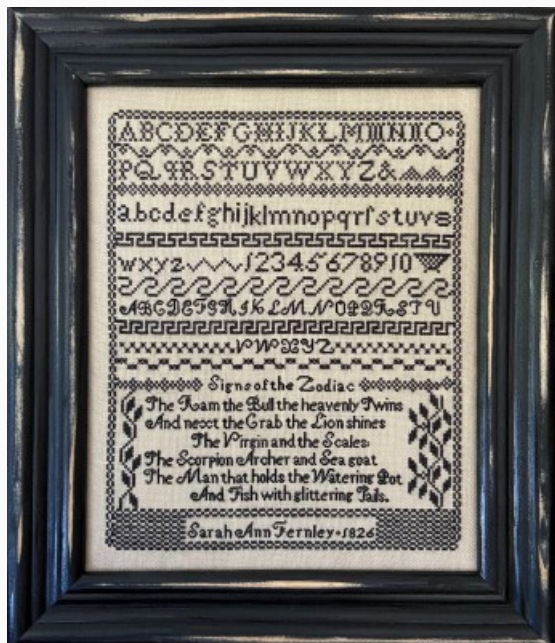 ABCDEFGHIJKLMNO
PQRSTUVWXYZ&
abcdefghijklmnopqrſstuvs
wxyz 12345678910
ABCDEFGHIKLMNOPQRSTU
VWXYZ
Signs of the Zodiac
The Ram the Bull the heavenly Twins
And next the Crab the Lion shines
The Virgin and the Scales
The Scorpion Archer and Sea goat
The Man that holds the Watering Pot
And Fish with glittering Tails.
Sarah Ann Fernley • 1826